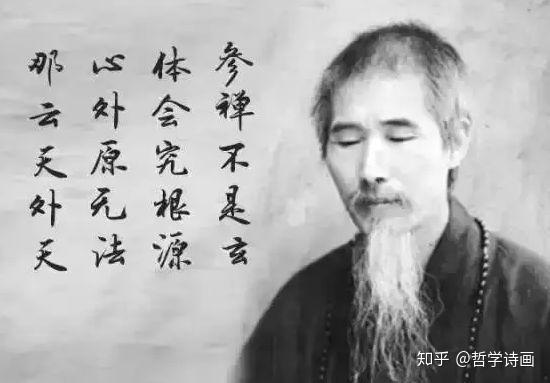 参禅不是玄
体会究根源
心外原无法
那云天外天
知乎 @哲学诗画